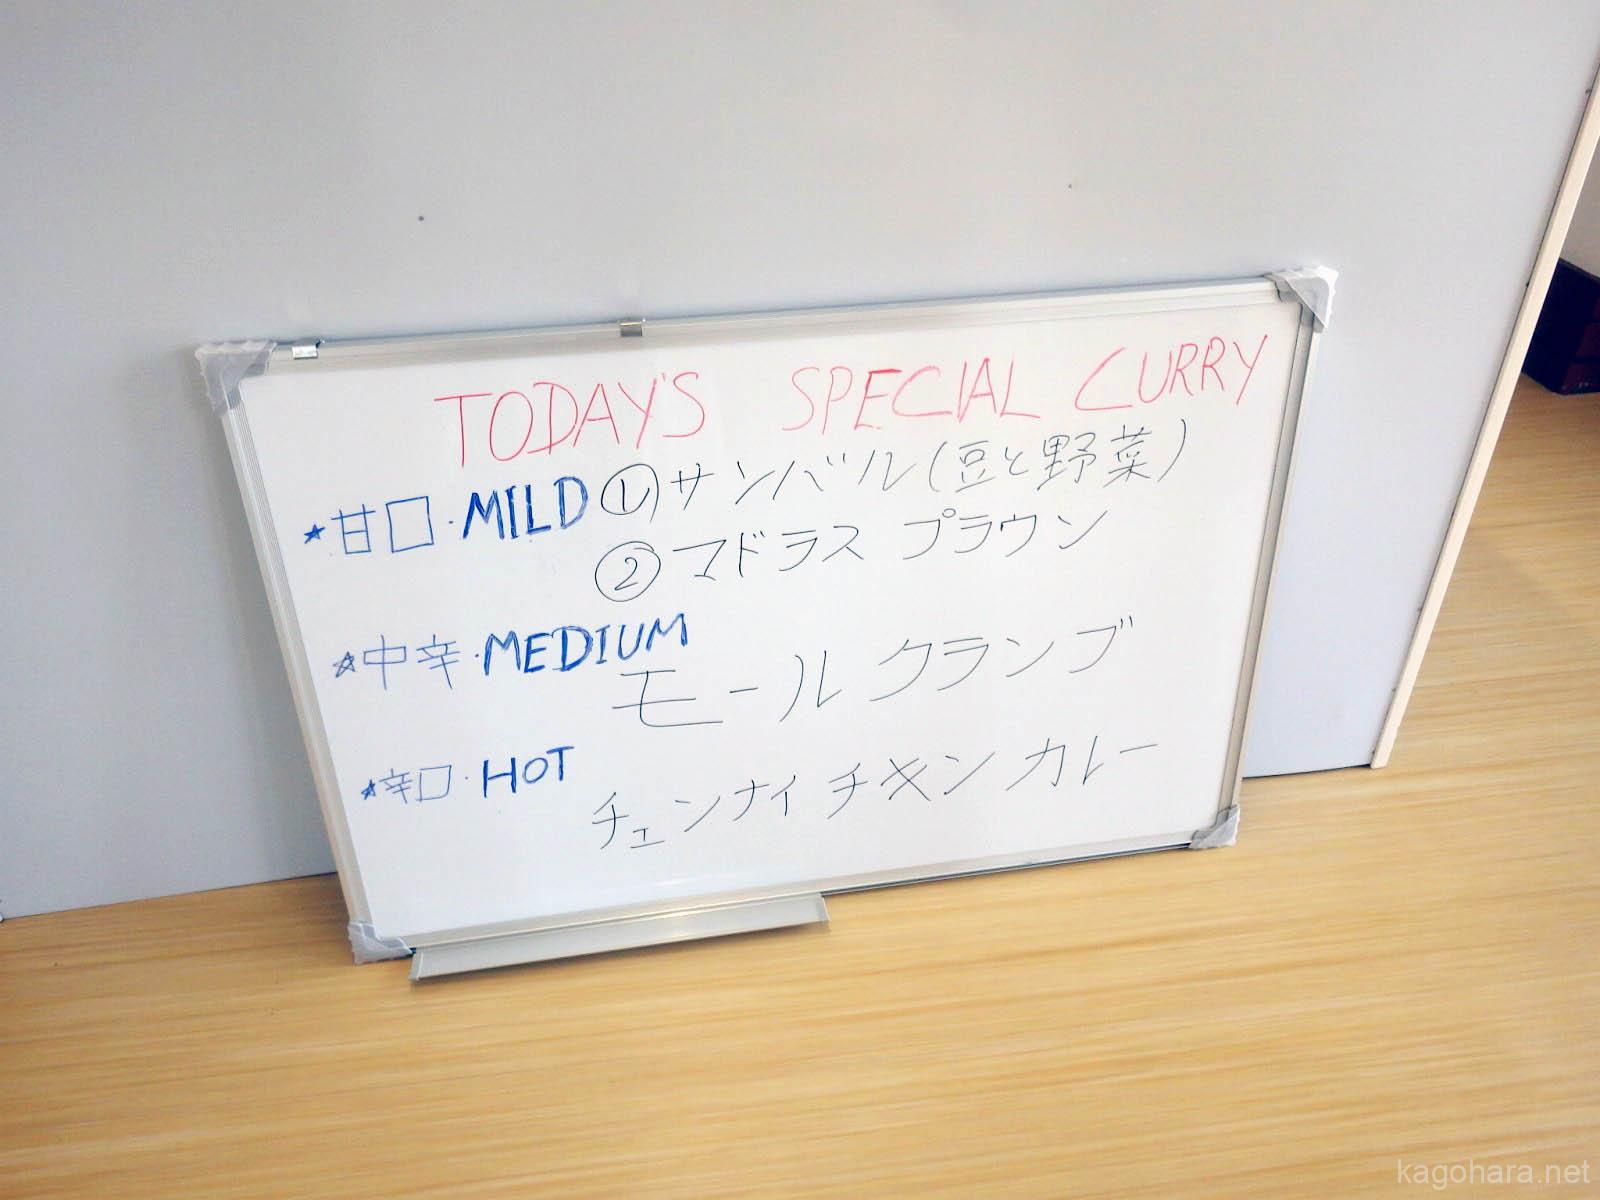 TODAY'S SPECIAL CURRY
★甘口・MILD ①サンバル(豆と野菜)
②マドラス プラウン
★中辛・MEDIUM
モールクランブ
★辛口・HOT
チェンナイチキンカレー
kagohara.net